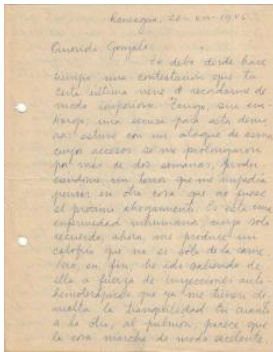 Rancagua, 20 - VII - 1946.
Querido Gonzalo:
Te debo desde hace
tiempo una contestación que tu
carta última viene a recordarme de
modo imperioso. Tengo, sin em-
bargo, una excusa para esta demo-
ra: estuve con un ataque de asma
cuyos accesos se me prolongaron
por más de dos semanas,
un terror que me impedía
pensar en otra cosa que no fuese
el próximo ahogamiento. Es esta una
enfermedad inhumana, cuyo solo
recuerdo, ahora, me produce un
calofrío que no es sólo de la carne.
Pero, en fin, he ido saliendo de
ella a fuerza de inyecciones auto
hemoterápicas que ya me tienen de
vuelta la tranquilidad. En cuanto
a lo otro, al pulmón, parece que
la cosa marcha de modo excelente.